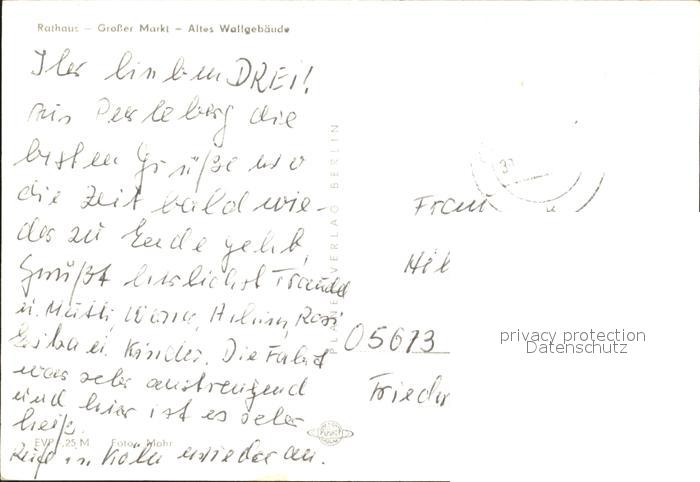 Rathaus – Großer Markt – Altes Wallgebäude
Ihr lieben DREI!
Aus Perleberg die
besten Grüße wo
die Zeit bald wie-
der zu Ende geht,
Grüßt herzlichst Traudel
u. Mutti, Rosi
u. Kinder. Die Fahrt
war sehr anstrengend
und hier ist es sehr
heiß.
in Köln wieder an.
EVP -,25 M Foto: Mohr
VERLAG BERLIN
Frau
Hil
05673
Frieder
privacy protection
Datenschutz